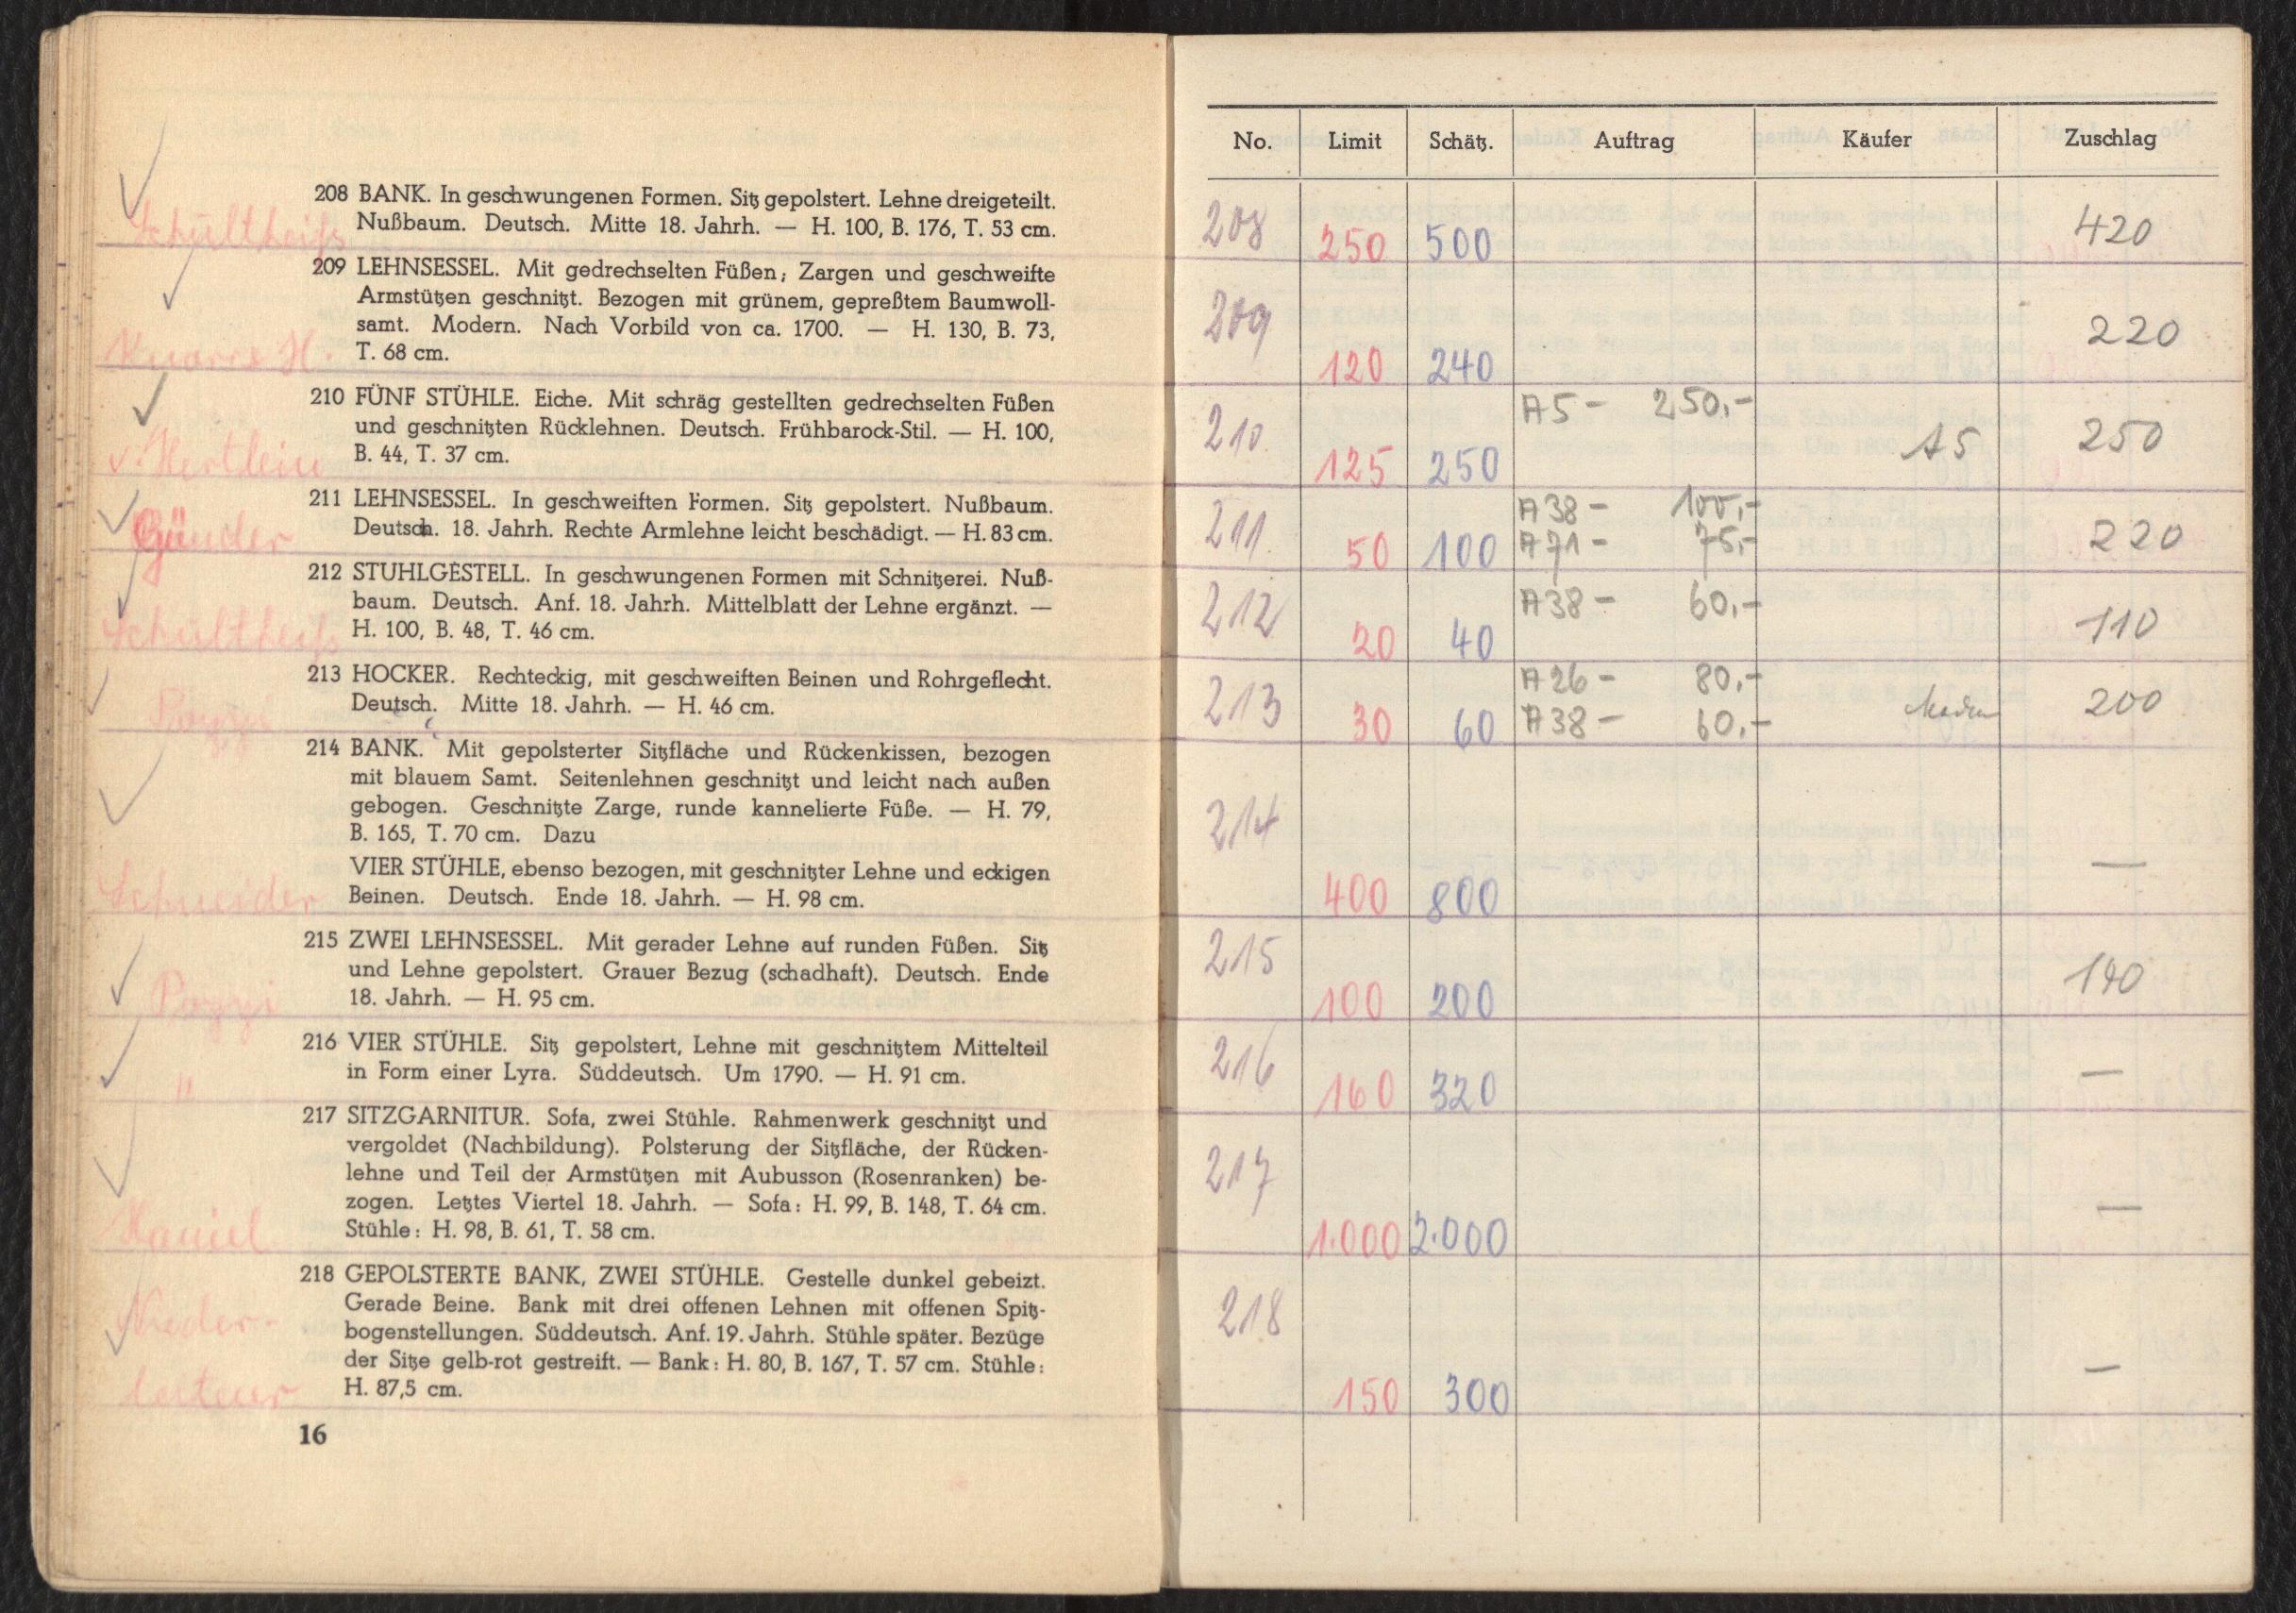 Schultheiss
208 BANK. In geschwungenen Formen. Sitz gepolstert. Lehne dreigeteilt.
Nußbaum. Deutsch. Mitte 18. Jahrh. — H. 100, B. 176, T. 53 cm.
209 LEHNSESSEL. Mit gedrechselten Füßen; Zargen und geschweifte
Armstützen geschnitzt. Bezogen mit grünem, gepreßtem Baumwoll-
samt. Modern. Nach Vorbild von ca. 1700. — H. 130, B. 73,
T. 68 cm.
210 FÜNF STÜHLE. Eiche. Mit schräg gestellten gedrechselten Füßen
und geschnitzten Rücklehnen. Deutsch. Frühbarock-Stil. — H. 100,
B. 44, T. 37 cm.
v. Hertlein
211 LEHNSESSEL. In geschweiften Formen. Sitz gepolstert. Nußbaum.
Deutsch. 18. Jahrh. Rechte Armlehne leicht beschädigt. — H. 83 cm.
Günder
212 STUHLGESTELL. In geschwungenen Formen mit Schnitzerei. Nuß-
baum. Deutsch. Anf. 18. Jahrh. Mittelblatt der Lehne ergänzt. —
H. 100, B. 48, T. 46 cm.
Schultheiss
213 HOCKER. Rechteckig, mit geschweiften Beinen und Rohrgeflecht.
Deutsch. Mitte 18. Jahrh. — H. 46 cm.
214 BANK. Mit gepolsterter Sitzfläche und Rückenkissen, bezogen
mit blauem Samt. Seitenlehnen geschnitzt und leicht nach außen
gebogen. Geschnitzte Zarge, runde kannelierte Füße. — H. 79,
B. 165, T. 70 cm. Dazu
VIER STÜHLE, ebenso bezogen, mit geschnitzter Lehne und eckigen
Beinen. Deutsch. Ende 18. Jahrh. — H. 98 cm.
Schneider
215 ZWEI LEHNSESSEL. Mit gerader Lehne auf runden Füßen. Sitz
und Lehne gepolstert. Grauer Bezug (schadhaft). Deutsch. Ende
18. Jahrh. — H. 95 cm.
216 VIER STÜHLE. Sitz gepolstert, Lehne mit geschnitztem Mittelteil
in Form einer Lyra. Süddeutsch. Um 1790. — H. 91 cm.
"
217 SITZGARNITUR. Sofa, zwei Stühle. Rahmenwerk geschnitzt und
vergoldet (Nachbildung). Polsterung der Sitzfläche, der Rücken-
lehne und Teil der Armstützen mit Aubusson (Rosenranken) be-
zogen. Letztes Viertel 18. Jahrh. — Sofa: H. 99, B. 148, T. 64 cm.
Stühle: H. 98, B. 61, T. 58 cm.
Haniel
218 GEPOLSTERTE BANK, ZWEI STÜHLE. Gestelle dunkel gebeizt.
Gerade Beine. Bank mit drei offenen Lehnen mit offenen Spitz-
bogenstellungen. Süddeutsch. Anf. 19. Jahrh. Stühle später. Bezüge
der Sitze gelb-rot gestreift. — Bank: H. 80, B. 167, T. 57 cm. Stühle:
H. 87,5 cm.
Nieder-
16
No. Limit Schätz. Auftrag Käufer Zuschlag
208 250 500 420
209 120 240 220
210 125 250 A5 - 250,- A5 250
211 50 100 A38 - 100,- 220
A71 - 75,-
212 20 40 A38 - 60,- 110
213 30 60 A26 - 80,- 200
A38 - 60,-
214 400 800 —
215 100 200 190
216 160 320 —
217 1.000 2.000 —
218 150 300 —